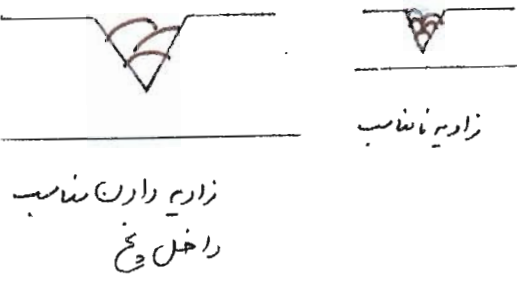 زاویه نامناسب
زاویه دادن مناسب
داخل پخ